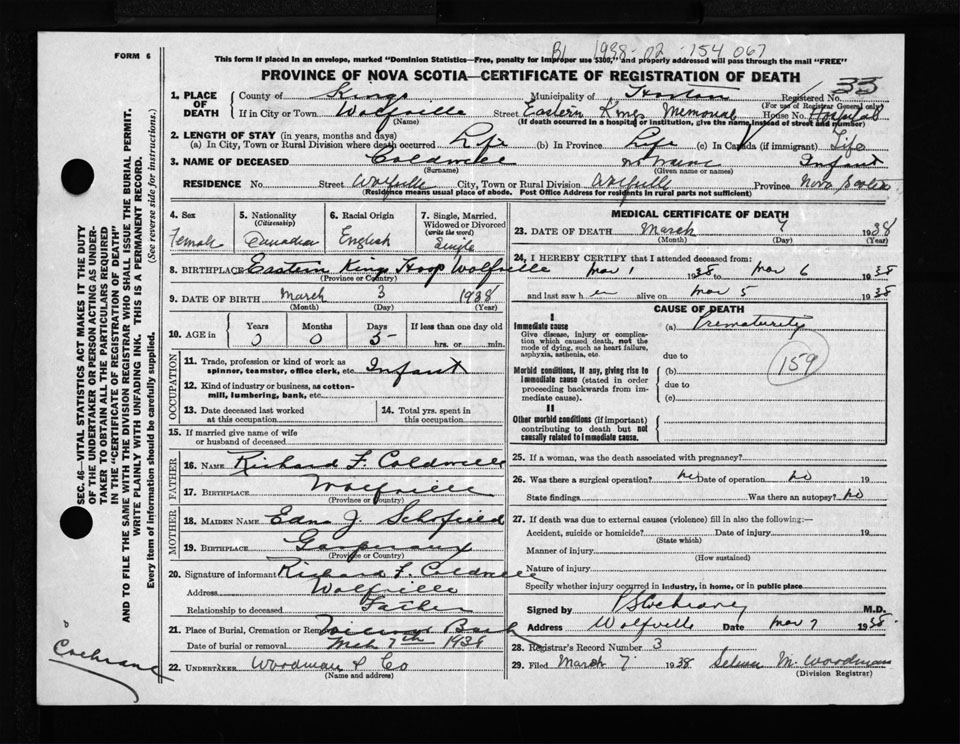 FORM 6
B1 1938-02-154067
This form if placed in an envelope, marked "Dominion Statistics—Free, penalty for improper use $300," and properly addressed will pass through the mail "FREE"
PROVINCE OF NOVA SCOTIA—CERTIFICATE OF REGISTRATION OF DEATH
1. PLACE OF DEATH
County of Kings Municipality of Horton Registered No. 33
(For use of Registrar General only)
If in City or Town Wolfville Street Eastern Kings Memorial House No. Hospital
(Name) (If death occurred in a hospital or institution, give the name, instead of street and number)
2. LENGTH OF STAY (in years, months and days)
(a) In City, Town or Rural Division where death occurred Life (b) In Province Life (c) In Canada (if immigrant) Life
3. NAME OF DECEASED Coldwell no name Infant
(Surname) (Given name or names)
RESIDENCE No. Street Wolfville City, Town or Rural Division Wolfville Province Nova Scotia
(Residence means usual place of abode. Post Office Address for residents in rural parts not sufficient)
4. Sex
Female
5. Nationality
(Citizenship)
Canadian
6. Racial Origin
English
7. Single, Married, Widowed or Divorced
(write the word)
Single
8. BIRTHPLACE Eastern Kings Hosp Wolfville
(Province or Country)
9. DATE OF BIRTH March 3 1938
(Month) (Day) (Year)
10. AGE in
Years Months Days If less than one day old
0 0 5 hrs. or min.
OCCUPATION
11. Trade, profession or kind of work as
spinner, teamster, office clerk, etc. Infant
12. Kind of industry or business, as cotton-
mill, lumbering, bank, etc.
13. Date deceased last worked
at this occupation
14. Total yrs. spent in
this occupation
15. If married give name of wife
or husband of deceased
FATHER
16. NAME Richard F. Coldwell
17. BIRTHPLACE Wolfville
(Province or Country)
MOTHER
18. MAIDEN NAME Edna J. Schofield
19. BIRTHPLACE Gaspereaux
(Province or Country)
20. Signature of informant Richard F. Coldwell
Address Wolfville
Relationship to deceased Father
21. Place of Burial, Cremation or Removal
Date of burial or removal Mch 7th 1938
22. UNDERTAKER Woodman & Co
(Name and address)
MEDICAL CERTIFICATE OF DEATH
23. DATE OF DEATH March 7 1938
(Month) (Day) (Year)
24. I HEREBY CERTIFY that I attended deceased from:
Mar 1 1938 to Mar 6 1938
and last saw her alive on Mar 5 1938
CAUSE OF DEATH
I
Immediate cause (a) Prematurity
Give disease, injury or complica-
tion which caused death, not the
mode of dying, such as heart failure,
asphyxia, asthenia, etc.
due to
159
Morbid conditions, if any, giving rise to
immediate cause (stated in order
proceeding backwards from im-
mediate cause).
(b)
due to
(c)
II
Other morbid conditions (if important)
contributing to death but not
causally related to immediate cause.
25. If a woman, was the death associated with pregnancy?
26. Was there a surgical operation? no Date of operation no 19
State findings Was there an autopsy? no
27. If death was due to external causes (violence) fill in also the following:—
Accident, suicide or homicide? Date of injury 19
(State which)
Manner of injury
(How sustained)
Nature of injury
Specify whether injury occurred in industry, in home, or in public place
Signed by PS Cochrane M.D.
Address Wolfville Date Mar 7 1938
28. Registrar's Record Number 3
29. Filed March 7 1938 M. Woodman
(Division Registrar)
SEC. 46—VITAL STATISTICS ACT MAKES IT THE DUTY
OF THE UNDERTAKER OR PERSON ACTING AS UNDER-
TAKER TO OBTAIN ALL THE PARTICULARS REQUIRED
IN THE "CERTIFICATE OF REGISTRATION OF DEATH"
AND TO FILE THE SAME WITH THE DIVISION REGISTRAR WHO SHALL ISSUE THE BURIAL PERMIT.
WRITE PLAINLY WITH UNFADING INK. THIS IS A PERMANENT RECORD.
Every item of information should be carefully supplied. (See reverse side for instructions.)
Cochrane